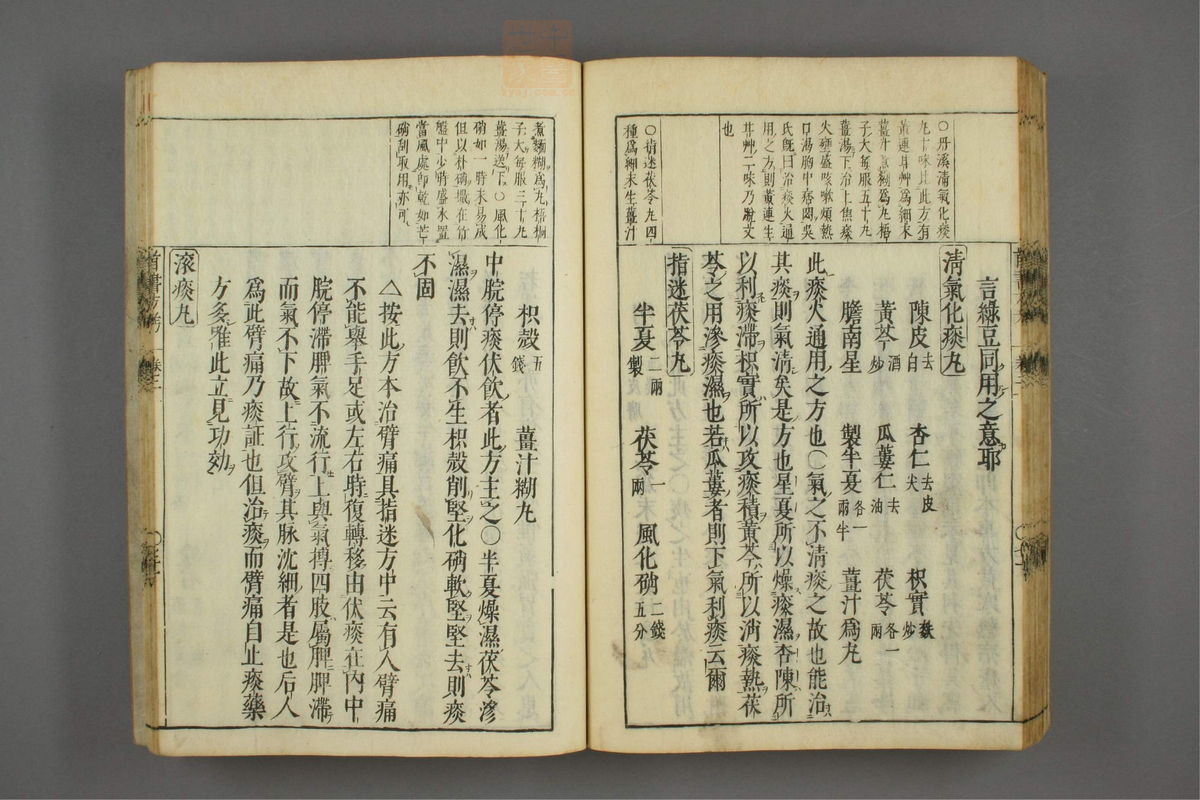 ○丹溪清氣化痰
丸十味比此方有
黃連甘艸爲細末
薑汁煮糊爲丸梧
子大每服五十丸
薑湯下治上焦痰
火壅盛咳嗽煩熱
口渴胸中痞悶吳
氏既曰治痰火通
用之方則黃連生
甘艸二味乃脫文
也
○指迷茯苓丸四
種爲細末生薑汁
言綠豆同用之意耶
清氣化痰丸
陳皮去白 杏仁去皮尖 枳實麩炒
黃芩酒炒 瓜蔞仁去油 茯苓各一兩
膽南星 製半夏各一兩半 薑汁爲丸
此痰火通用之方也○氣之不清痰之故也能治
其痰則氣清矣是方也星夏所以燥痰濕杏陳所
以利痰滯枳實所以攻痰積黃芩所以消痰熱茯
苓之用滲痰濕也若瓜蔞者則下氣利痰云爾
指迷茯苓丸
半夏二兩製 茯苓一兩 風化硝二錢五分
煮麵糊爲丸梧桐
子大每服三十丸
薑湯送下○風化
硝如一時未易成
但以朴硝撒在竹
盤中少時盛水置
當風處即乾如芒
硝刮取用亦可
枳殼五錢 薑汁糊丸
中脘停痰伏飲者此方主之○半夏燥濕茯苓滲
濕濕去則飲不生枳殼削堅化硝軟堅堅去則痰
不固
△按此方本治臂痛具指迷方中云有人臂痛
不能舉手足或左右時復轉移由伏痰在內中
脘停滯脾氣不流行上與氣搏四肢屬脾脾滯
而氣不下故上行攻臂其脉沈細者是也后人
爲此臂痛乃痰証也但治痰而臂痛自止痰藥
方多唯此立見功効
滾痰丸